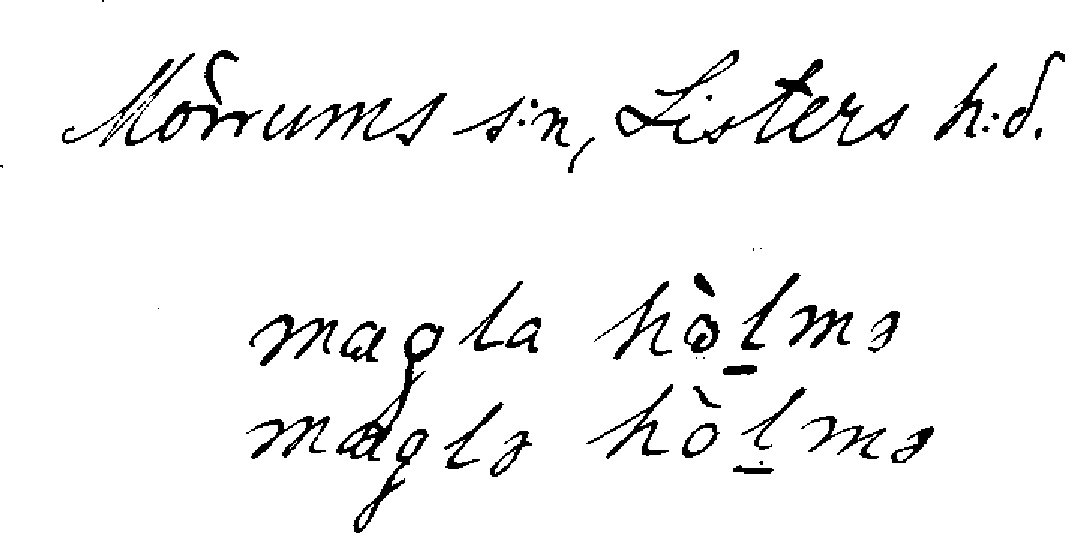 Mörrums s:n, Listers h:d.
magla hòl̲mə
maglə hòl̲mə